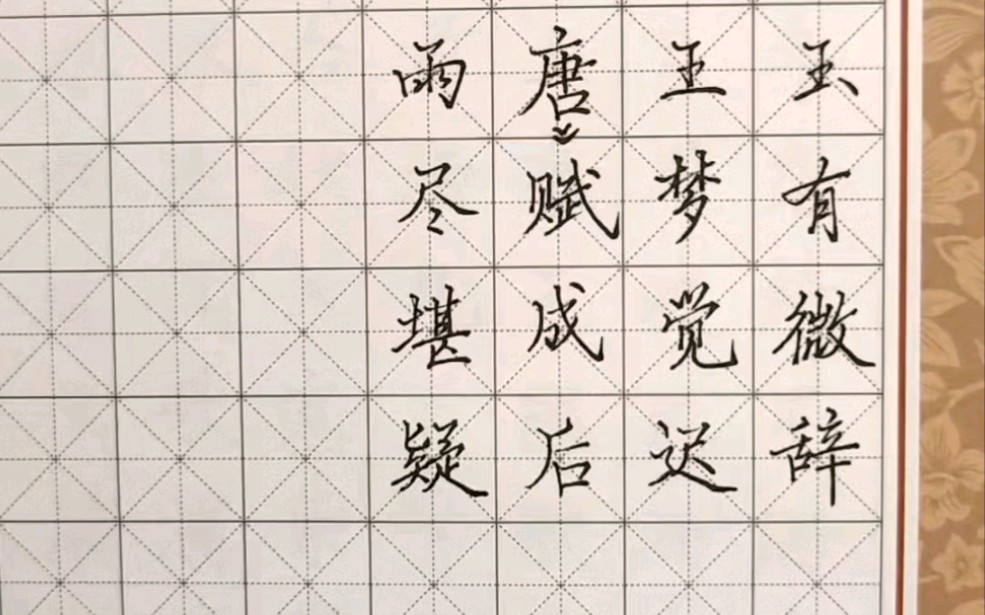 玉有微辞
王梦觉迟
唐赋成后
雨尽堪疑